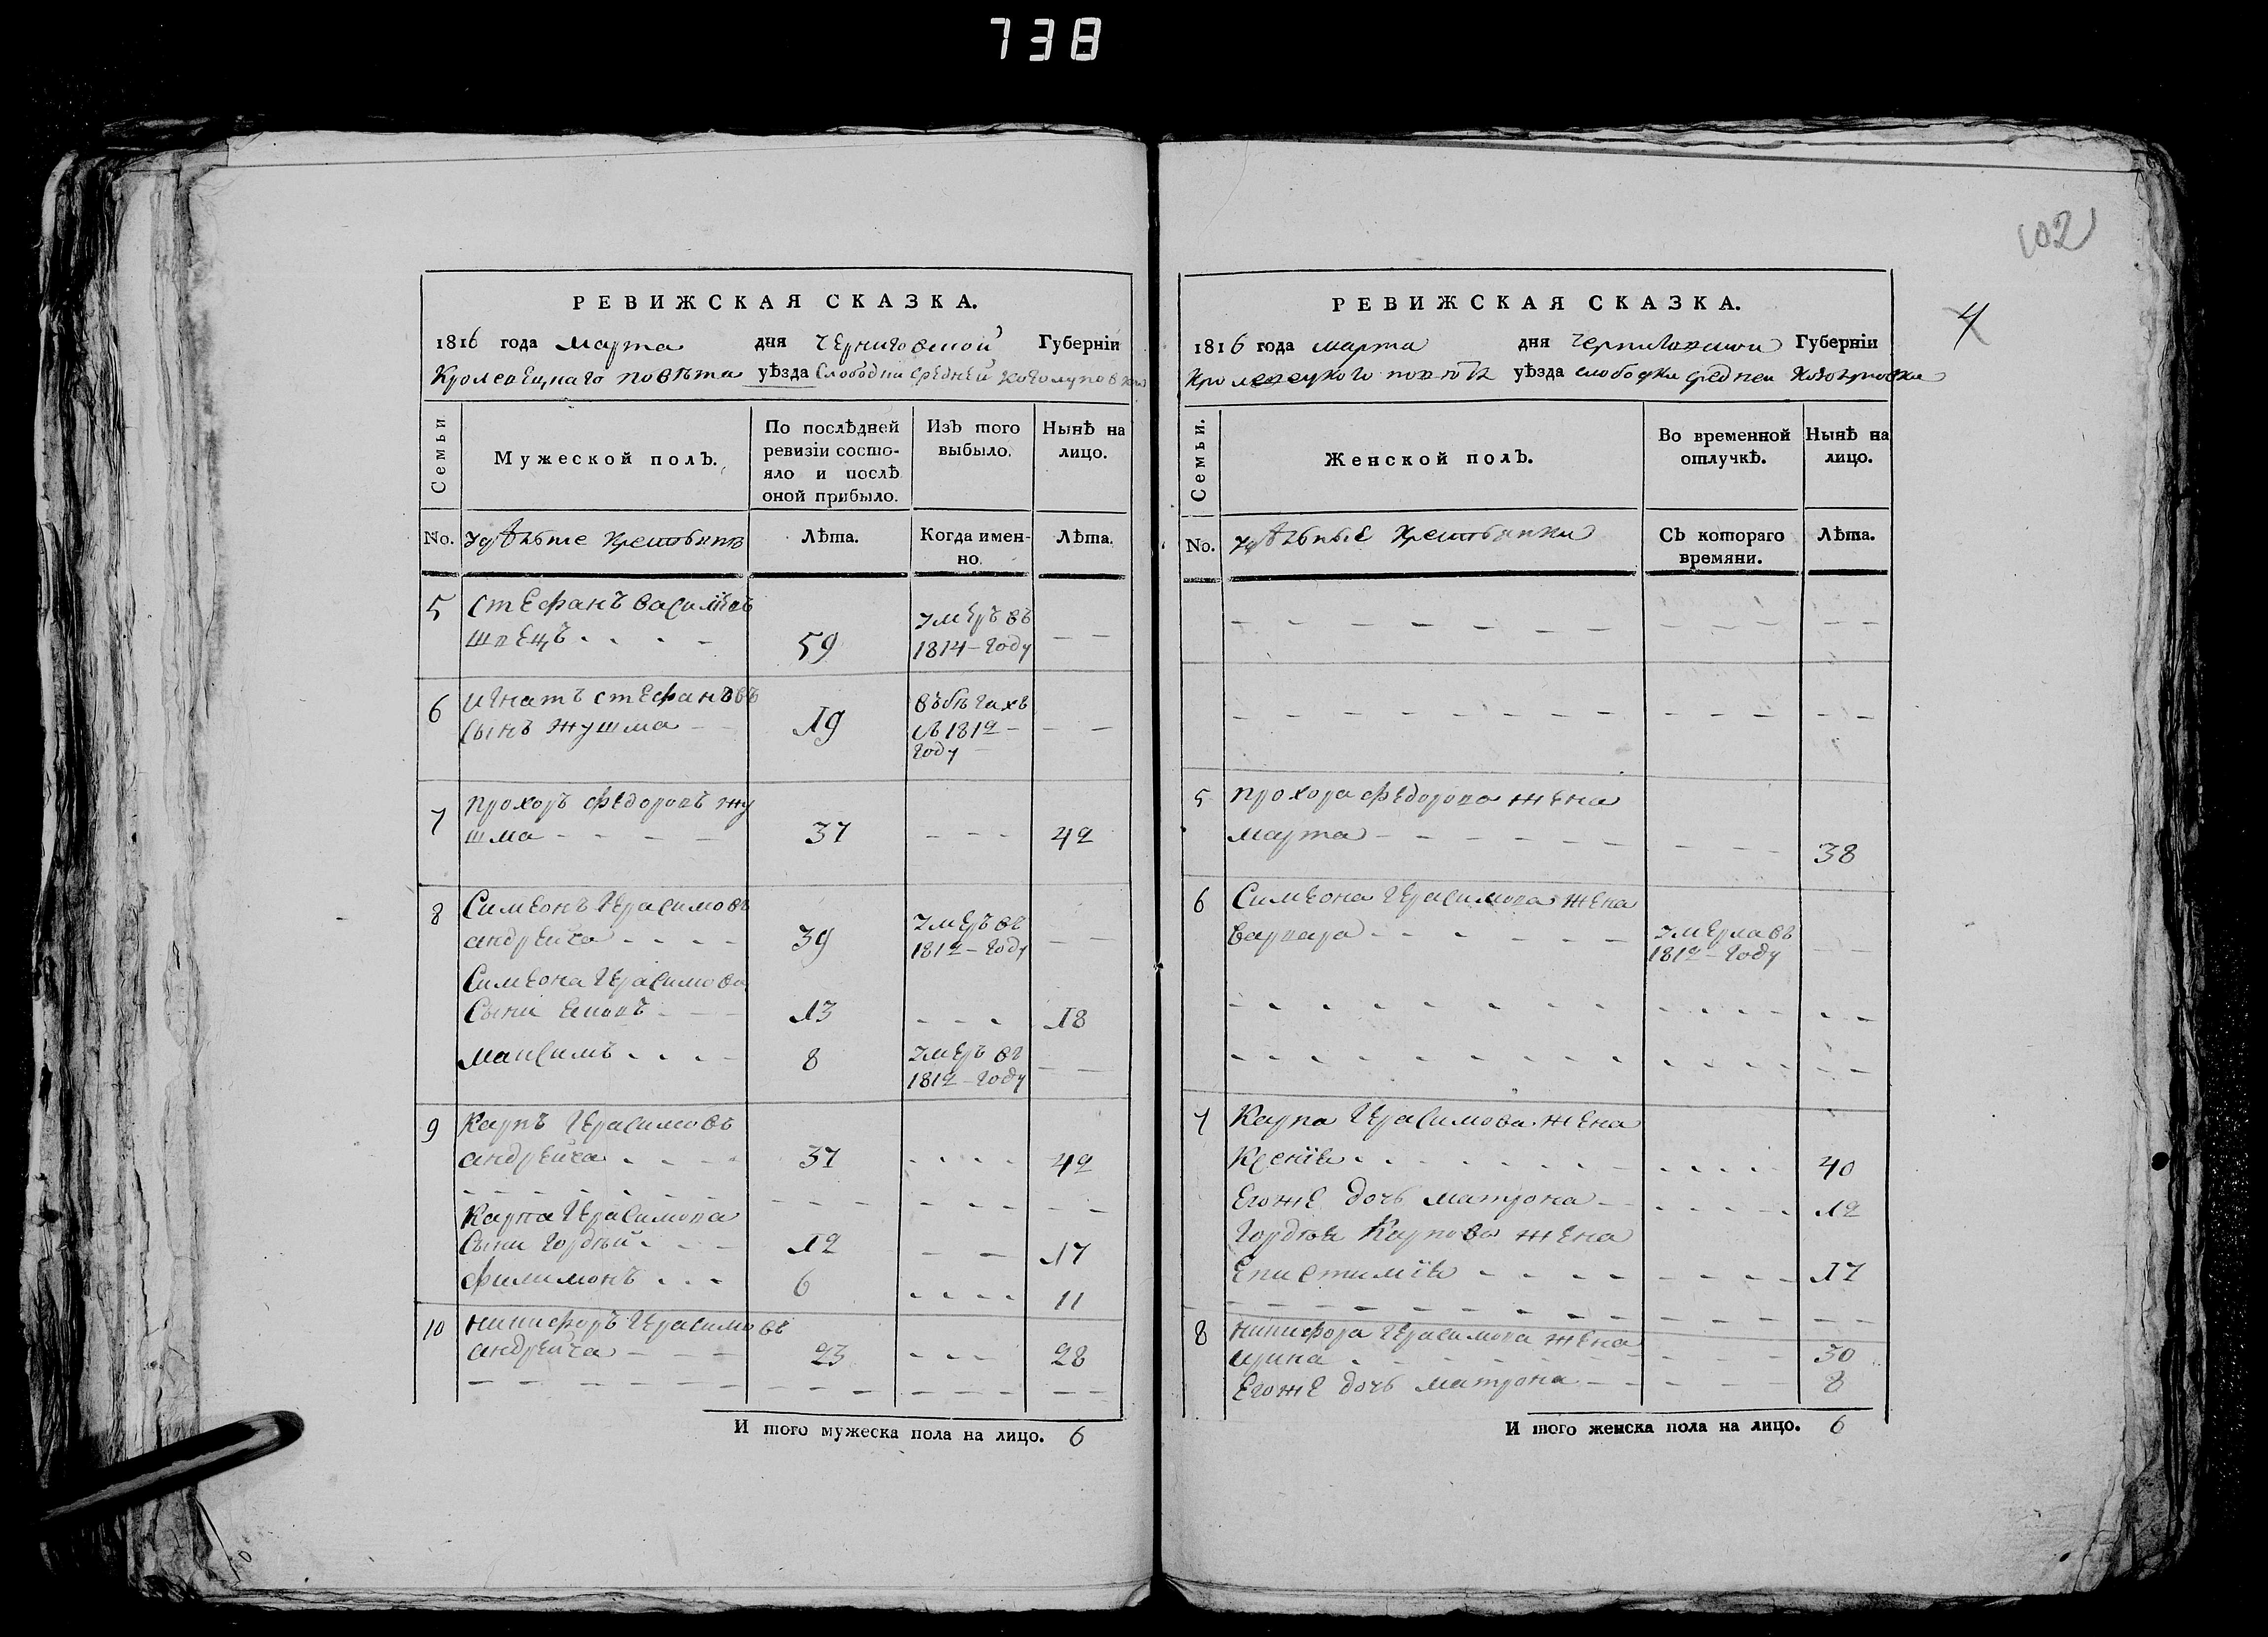 738
102
4
РЕВИЖСКАЯ СКАЗКА.
1816 года марта дня Черниговской Губерніи
Кролевецкаго повѣта уѣзда слободки средней
Семьи
Мужеской полъ.
По послѣдней ревизіи состояло и послѣ оной прибыло.
Изъ того выбыло.
Нынѣ на лицо.
No. Удѣльные крестьяне
Лѣта.
Когда именно.
Лѣта.
5 Стефанъ Васильевъ
умеръ въ
Швецъ 59 1814 году
6 Игнатъ Стефановъ
въ бѣгахъ
сынъ Жушма 19 съ 1812
году
7 Прохоръ Федоровъ Жу
шма 37 42
8 Симеонъ Герасимовъ
умеръ въ
Андрейча 39 1812 году
Симеона Герасимова
сыни 13 18
Максимъ 8 умеръ въ
1812 году
9 Карпъ Герасимовъ
Андрейча 37 42
Карпа Герасимова
сыни Гордѣй 12 17
Филимонъ 6 11
10 Никифоръ Герасимовъ
Андрейча 23 28
И того мужеска пола на лицо. 6
РЕВИЖСКАЯ СКАЗКА.
1816 года марта дня Черниговской Губерніи
Кролевецкого повѣта уѣзда слободки средней
Семьи.
Женской полъ.
Во временной отлучкѣ.
Нынѣ на лицо.
No. Удѣльные крестьянки
Съ котораго времяни.
Лѣта.
5 Прохора Федорова жена
Марта 38
6 Симеона Герасимова жена
Варвара умерла въ
1812 году
7 Карпа Герасимова жена
Ксенія 40
Егоже дочь Матрона 12
Гордѣя Карпова жена
Епистимія 17
8 Никифора Герасимова жена
Ирина 30
Егоже дочь Матрона 8
И того женска пола на лицо. 6